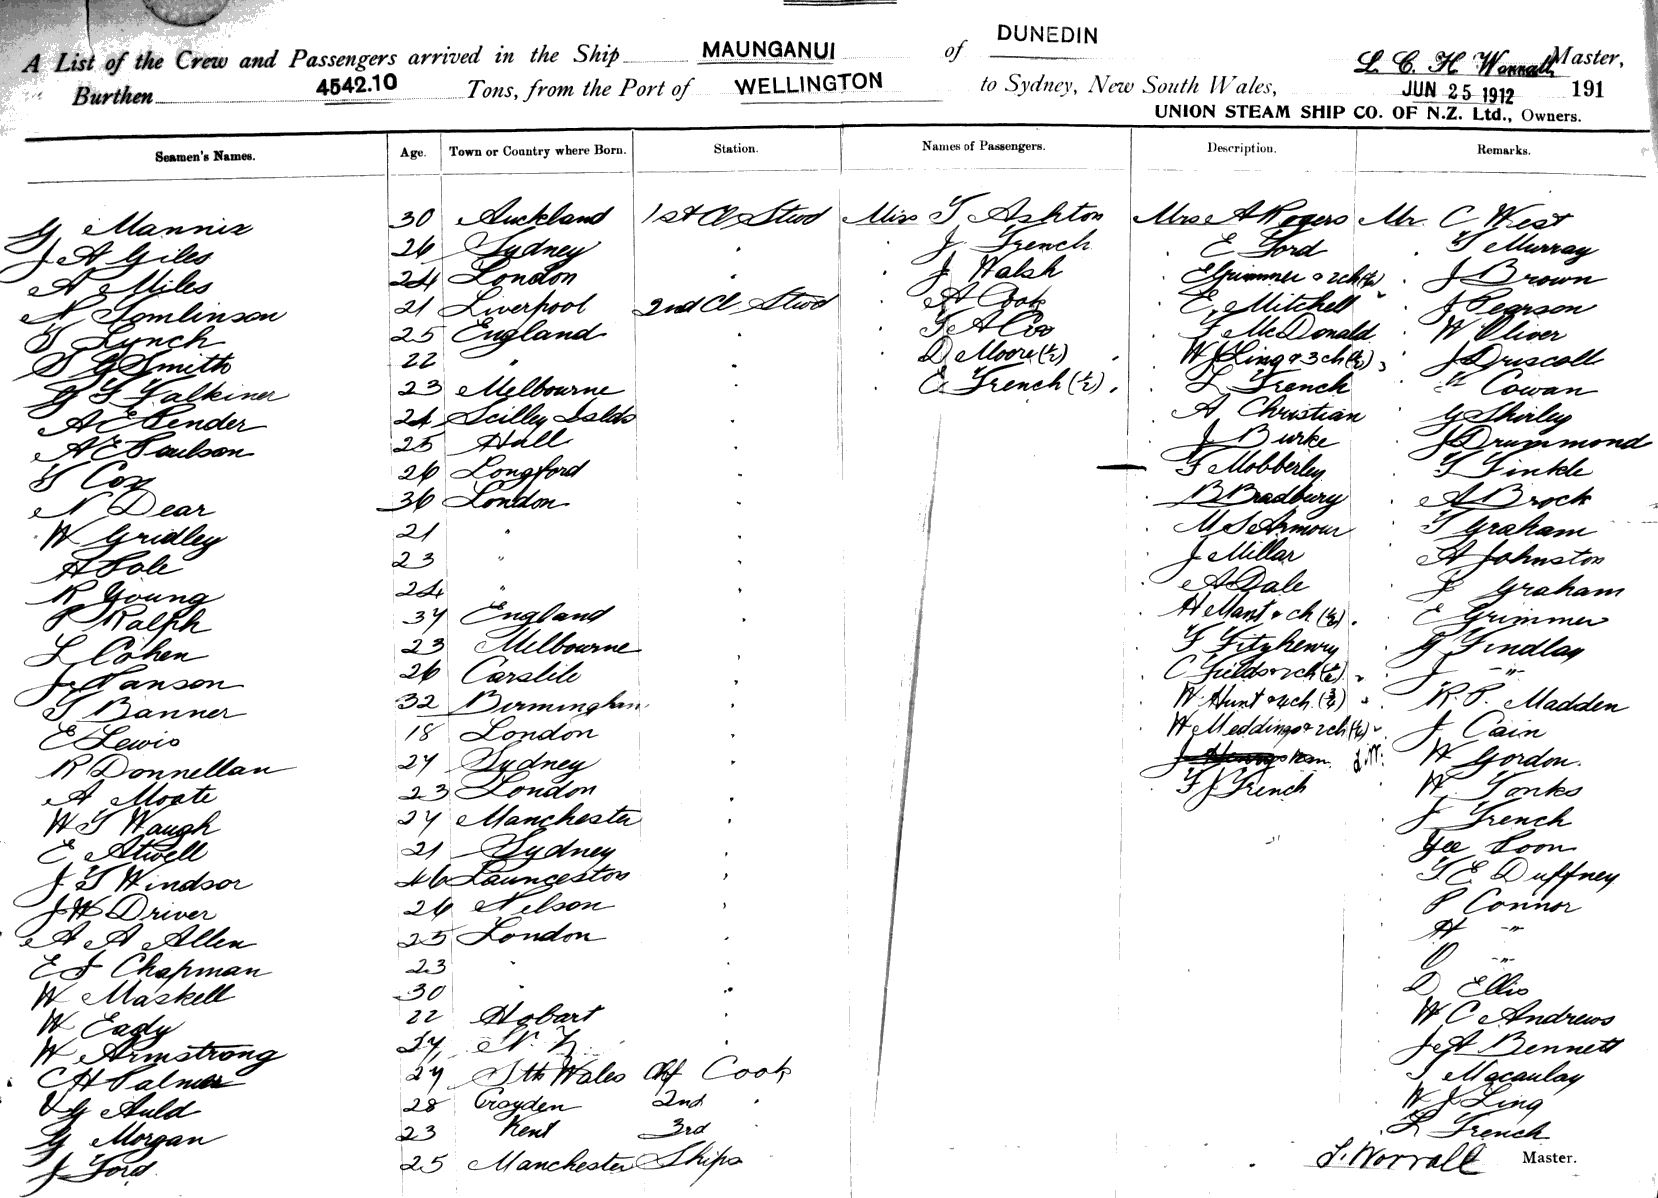 A List of the Crew and Passengers arrived in the Ship MAUNGANUI of DUNEDIN L. C. H Worrall Master,
Burthen 4542.10 Tons, from the Port of WELLINGTON to Sydney, New South Wales, JUN 25 1912 191
UNION STEAM SHIP CO. OF N.Z. Ltd., Owners.
Seamen's Names. Age. Town or Country where Born. Station. Names of Passengers. Description. Remarks.
G Mannix 30 Auckland 1st Cl Stwd Miss T Ashton Mrs A Rogers Mr. C West
J A Giles 26 Sydney " J French " E Ford " T Murray
A Miles 24 London " J Walsh " E Grimmer & 2ch (1/2) " J Brown
N Tomlinson 21 Liverpool 2nd Cl Stwd " A Cook " E Mitchell " J Pearson
T Lynch 25 England " T A Cox " F McDonald " W Oliver
S G Smith 22 " " " D Moore (1/2) " W J Ling & 3 ch (1/2) " J Driscoll
G T Falkiner 23 Melbourne " " E French (1/2) " L French " Cowan
A E Pender 24 Scilley Islds " A Christian " G Shirley
A E Poulson 25 Hull " J Burke " J Drummond
T Cox 26 Longford " F Mobberley " T Finkle
N Dear 36 London " B Bradbury " A Brock
W Gridley 21 " " M S Armour " T Graham
A Sole 23 " " J Millar " A Johnston
R Young 24 " " A Dale " J Graham
P Ralph 37 England " H Mant & ch (1/2) " E Grimmer
L Cohen 23 Melbourne " F Fitzhenry " G Findlay
J Panson 26 Carslile " C Fields & 2ch (1/2) " J "
T Banner 32 Birmingham " W Hunt & 4ch. " R. P. Madden
E Lewis 18 London " W Meddings & 2ch (1/2) " J Cain
R Donnellan 27 Sydney " " W Gordon.
A Moate 23 London " F J French " W Tonks
W T Waugh 27 Manchester " J French
E Atwell 21 Sydney " Yee Soon
J T Windsor 46 Launceston " T E Duffney
J W Driver 26 Nelson " P Connor
A A Allen 25 London " H "
E J Chapman 23 " " O "
W Maskell 30 " " D Ellis
W Eady 22 Hobart " W C Andrews
W Armstrong 27 N. Z. " J A Bennett
C H Palmer 27 Sth Wales Chf Cook " T Macaulay
V G Auld 28 Croyden 2nd " " W J Ling
G Morgan 23 Kent 3rd " L French
J Ford 25 Manchester Ships L. Worrall Master.